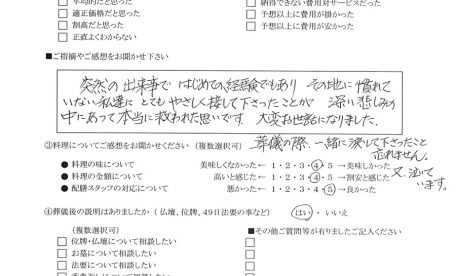 □ 平均的だと思った　□ 納得できない費用対サービスだった
□ 適正価格だと思った　□ 予想以上に費用が掛かった
□ 割高だと思った　□ 予想以上に費用が安かった
□ 正直よくわからない
■ご指摘やご感想をお聞かせ下さい
突然の出来事で はじめての経験でもあり その地に慣れて
いない私達に とてもやさしく接して下さったことが 深い悲しみの
中にあって本当に救われた思いです. 大変お世話になりました.
葬儀の際、一緒に涙して下さったこと
忘れません.
③料理についてご感想をお聞かせください（複数選択可）
● 料理の味について　美味しくなかった← 1・2・3・4・5 →美味しかった
● 料理の金額について　高いと感じた← 1・2・3・4・5 →割安と感じた
● 配膳スタッフの対応について　悪かった← 1・2・3・4・5 →良かった
又、泣いて
います。
④葬儀後の説明はありましたか（仏壇、位牌、49日法要の事など）　はい・いいえ
（複数選択可）　■その他ご質問等が有りましたご記入ください
□ 位牌・仏壇について相談したい
□ お墓について相談したい
□ 法要について相談したい